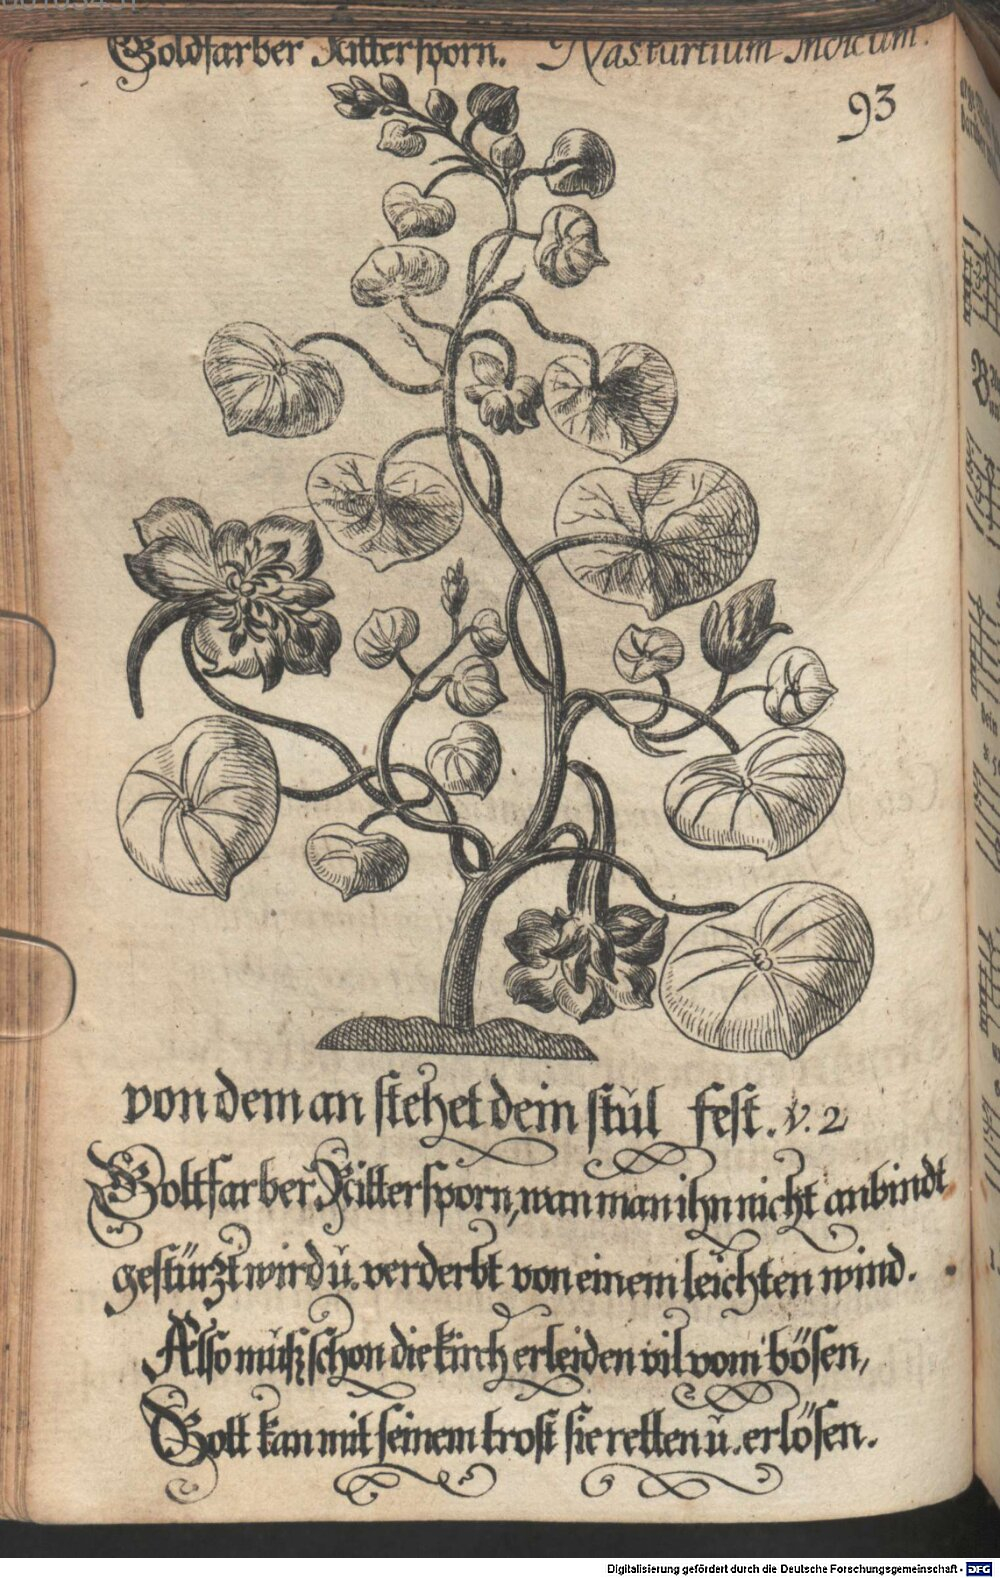 Goldfarber Rittersporn. Nasturtium Indicum.
93
von dem an stehet dein stul fest. v. 2
Goltfarber Rittersporn, wan man ihn nicht anbindt
gestürzt wird u. verderbt von einem leichten wind.
Also muß schon die kirch erleiden vil vom bösen,
Gott kan mit seinem trost sie retten u. erlösen.
Digitalisierung gefördert durch die Deutsche Forschungsgemeinschaft - DFG